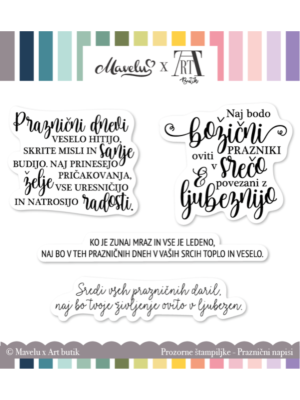 Mavelu x ART Butik
Praznični dnevi
VESELO HITIJO,
SKRITE MISLI IN sanje
BUDIJO. NAJ PRINESEJO
želje PRIČAKOVANJA,
VSE URESNIČIJO
IN NATROSIJO radosti.
Naj bodo
božični
PRAZNIKI
oviti v srečo
& povezani z
ljubeznijo
KO JE ZUNAJ MRAZ IN VSE JE LEDENO,
NAJ BO V TEH PRAZNIČNIH DNEH V VAŠIH SRCIH TOPLO IN VESELO.
Sredi vseh prazničnih daril,
naj bo tvoje življenje ovito v ljubezen.
© Mavelu x Art butik
Prozorne štampiljke - Praznični napisi